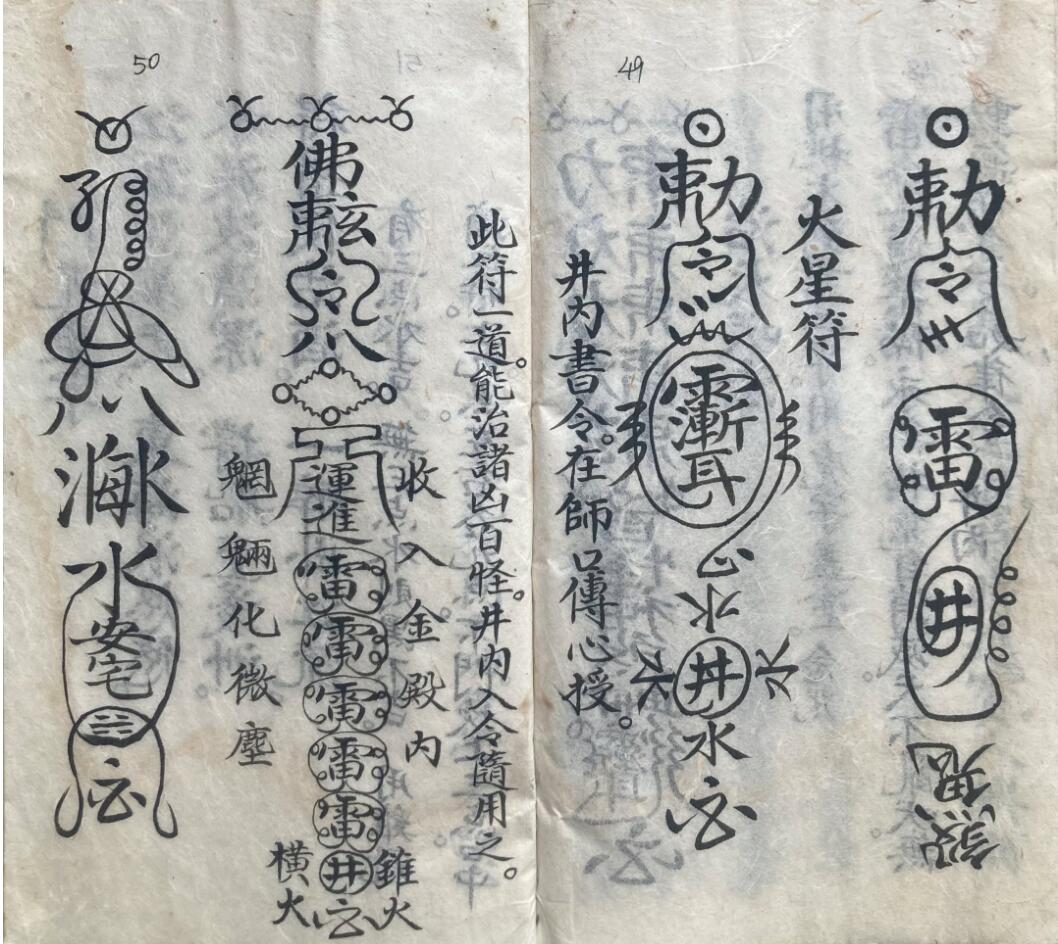 49
勅令
雷
井
火星符
勅令
水
井
水
井内書令。在師口傳心授。
50
此符一道。能治諸凶百怪。井内入令隨用之。
收入金殿内
佛
令
八
運進
雷
雷
雷
雷
雷
井
錐火
橫火
魍魎化微塵
八
海水
水
安宅